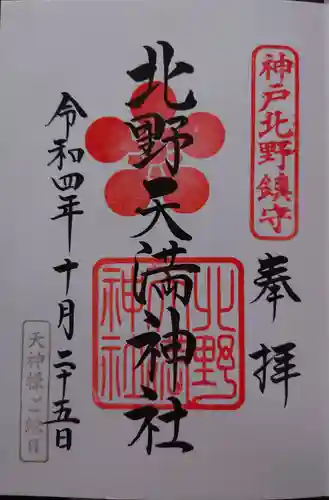 神戸北野鎮守
奉拝
北野天満神社
北野
天満
神社
令和四年十月二十五日
天神様ご縁日